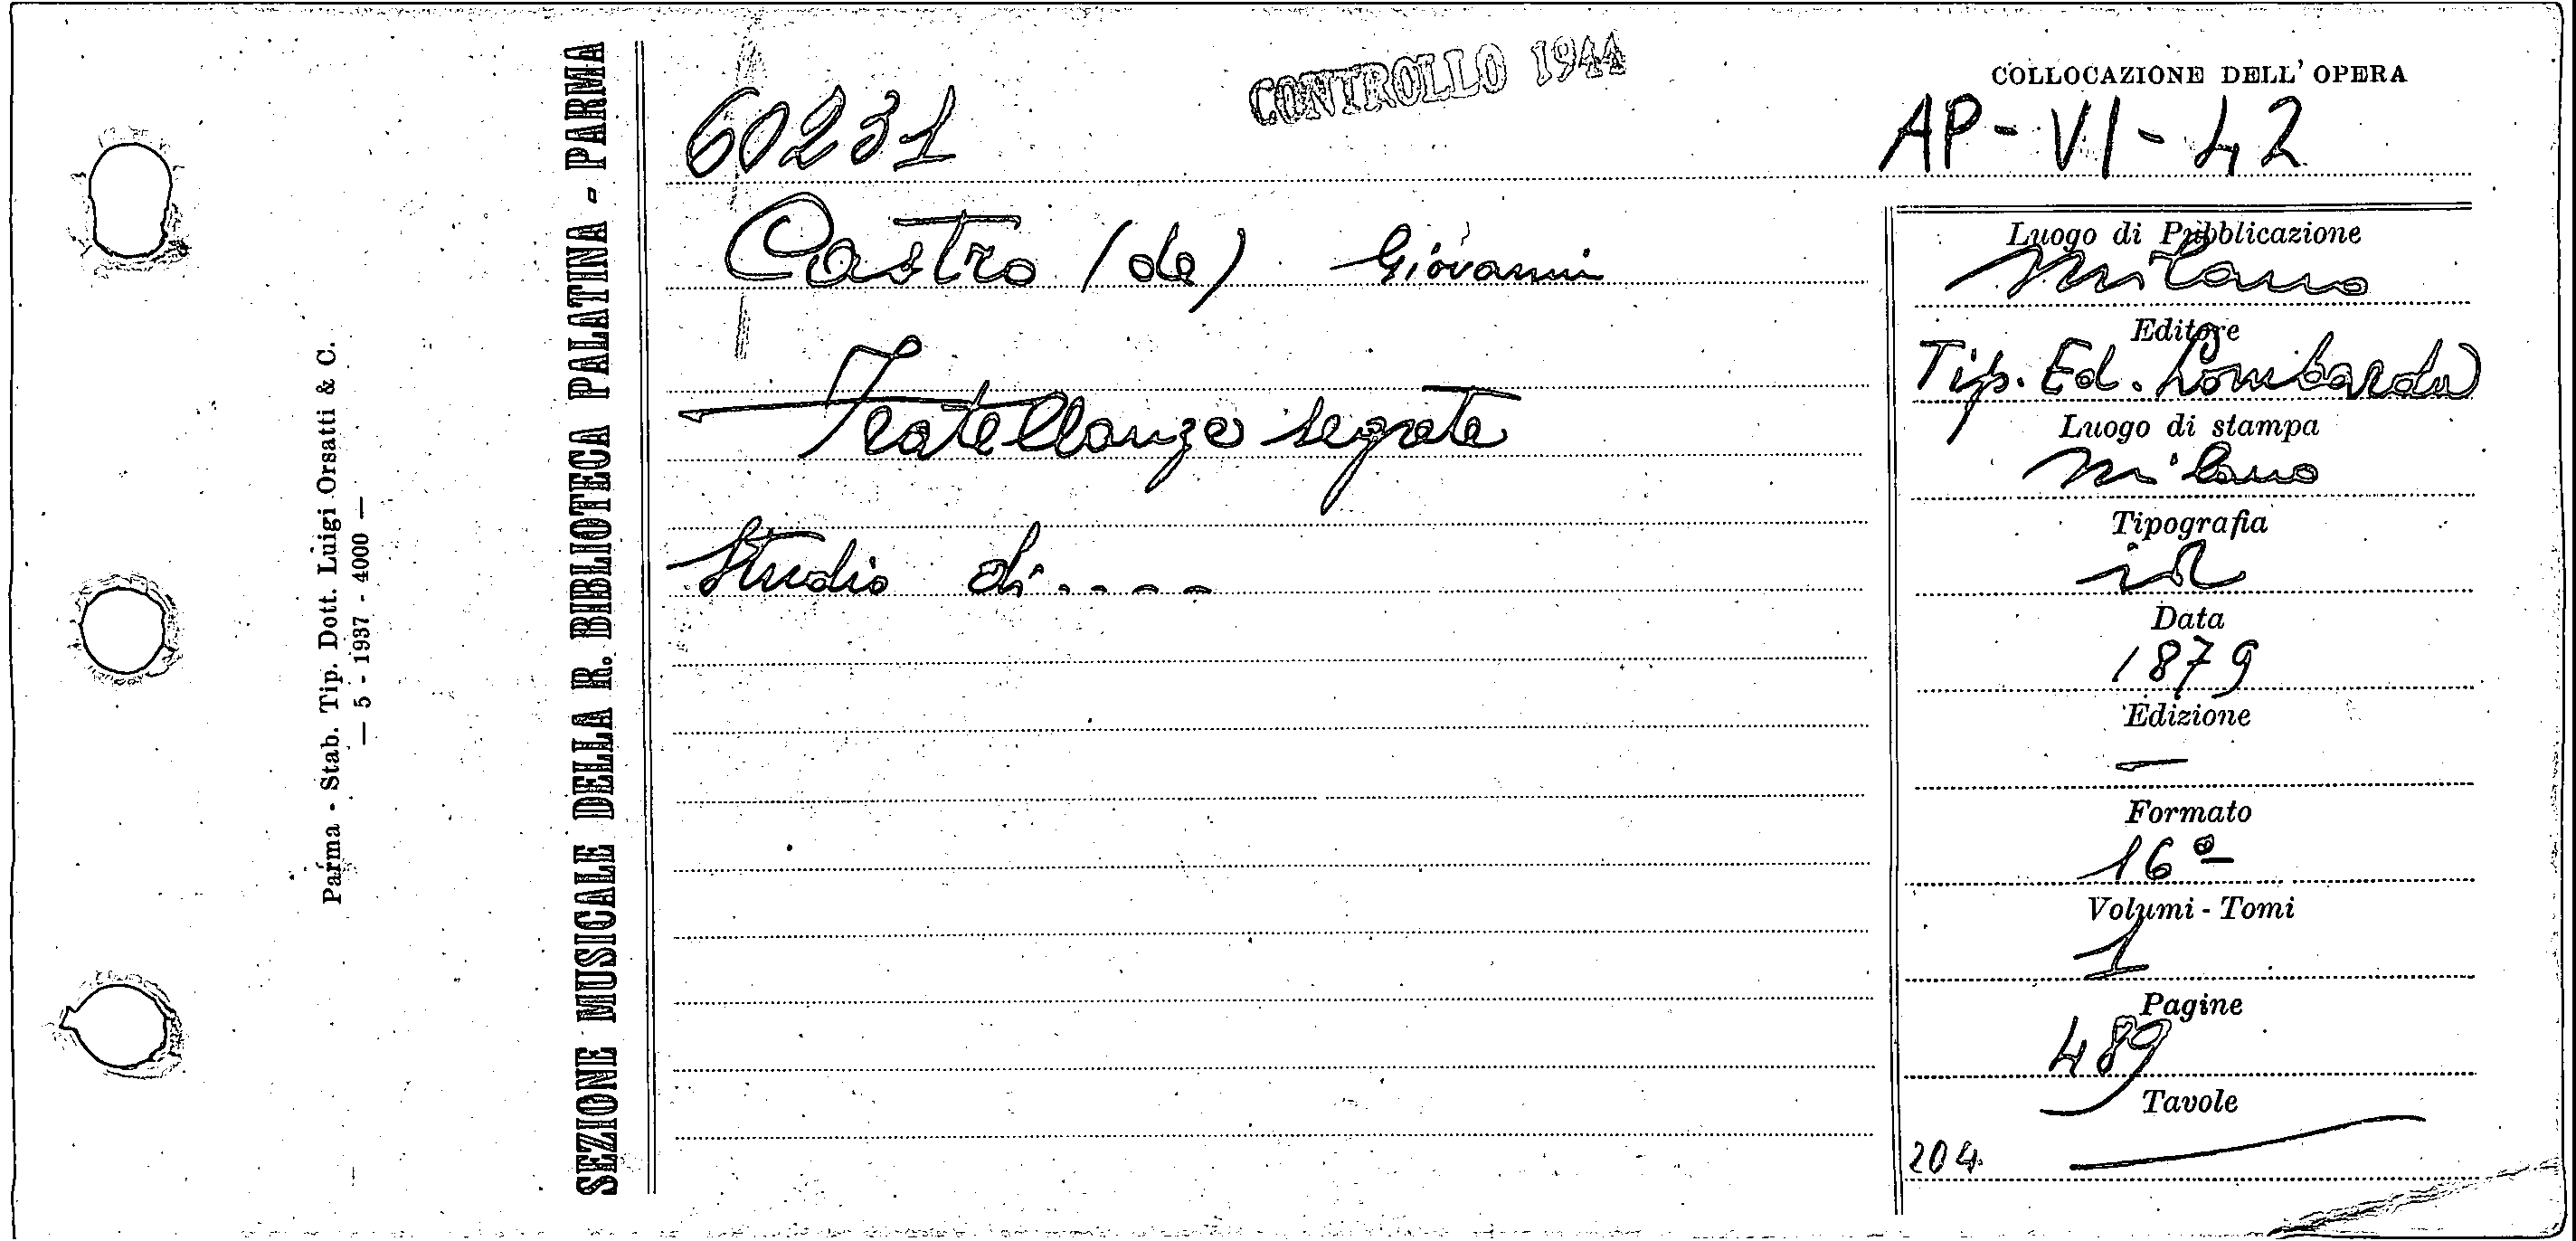 Parma - Stab. Tip. Dott. Luigi Orsatti & C.
— 5 - 1937 - 4000 —
SEZIONE MUSICALE DELLA R. BIBLIOTECA PALATINA - PARMA
60231
CONTROLLO 1944
Castro (de) Giovanni
Fratellanze segrete
Studio di....
COLLOCAZIONE DELL' OPERA
AP-VI-42
Luogo di Pubblicazione
Milano
Editore
Tip. Ed. Lombarda
Luogo di stampa
Milano
Tipografia
id
Data
1879
Edizione
—
Formato
16º
Volumi - Tomi
1
Pagine
489
Tavole
204